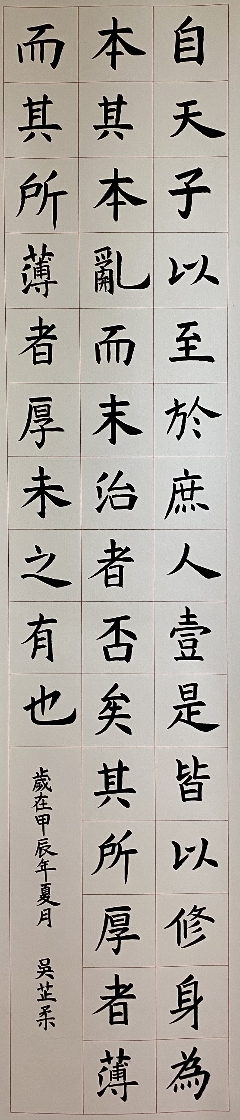 自天子以至於庶人壹是皆以修身為
本其本亂而末治者否矣其所厚者薄
而其所薄者厚未之有也
歲在甲辰年夏月 吳芷柔